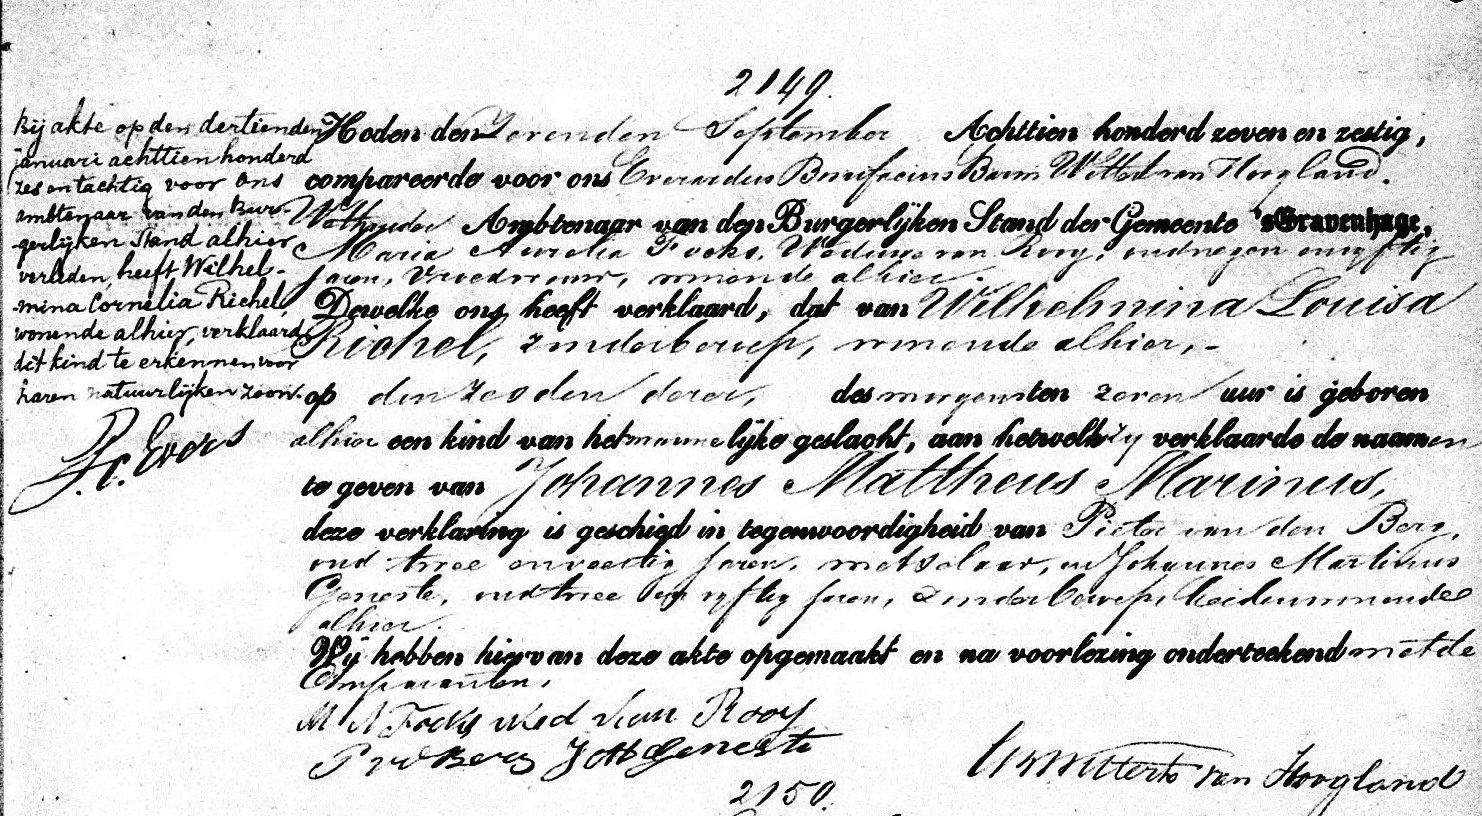 2149.
Bij akte op den dertienden
januari achttienhonderd
zes en tachtig voor ons
ambtenaar van den Bur-
gerlijken Stand alhier
verleden, heeft Wilhel-
mina Cornelia Richel,
wonende alhier, verklaard
dit kind te erkennen voor
haren natuurlijken zoon.
Heden den Zevenden September Achttien honderd zeven en zestig,
compareerde voor ons Everardus Bonifacius Baron Wittert van Hoogland.
Wethouder Ambtenaar van den Burgerlijken Stand der Gemeente 'sGravenhage,
Maria Aurelia Focks, Weduwe van Rooy, oud negen en vyftig
jaren, Vroedvrouw, wonende alhier.
Dewelke ons heeft verklaard, dat van Wilhelmina Louisa
Richel, zonder beroep, wonende alhier, -
op den zesden dezer, des morgens ten zeven uur is geboren
alhier een kind van het mannelijke geslacht, aan hetwelk zy verklaarde de naamen
te geven van Johannes Mattheus Marinus,
deze verklaring is geschied in tegenwoordigheid van Pieter van den Berg,
oud twee en veertig jaren, metselaar, en Johannes Martinus
Geneste, oud twee en vyftig jaren, zonder beroep, beiden wonende
alhier.
Wij hebben hiervan deze akte opgemaakt en na voorlezing onderteekend met de
Comparanten.
M A Focks Wed van Rooy
P vd Berg J M Geneste
Wittert van Hoogland
2150.